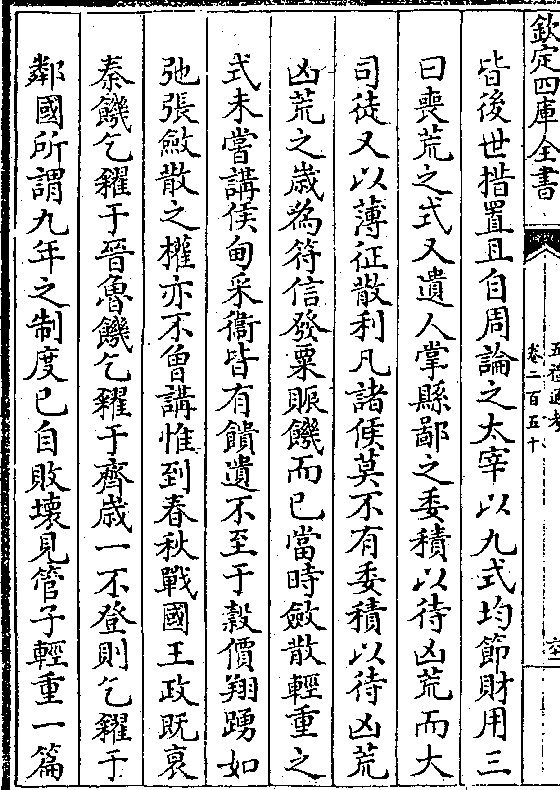 欽定四庫全書
五禮通考
卷二百五十
皆後世措置且自周論之太宰以九式均節財用三
曰喪荒之式又遺人掌縣鄙之委積以待凶荒而大
司徒又以薄征散利凡諸侯莫不有委積以待凶荒
凶荒之歲為符信發粟賑饑而已當時斂散輕重之
式未嘗講侯甸采衛皆有饋遺不至于穀價翔踴如
弛張斂散之權亦不曾講惟到春秋戰國王政既衰
秦饑乞糴于晉魯饑乞糴于齊歲一不登則乞糴于
鄰國所謂九年之制度已自敗壞見管子輕重一篇